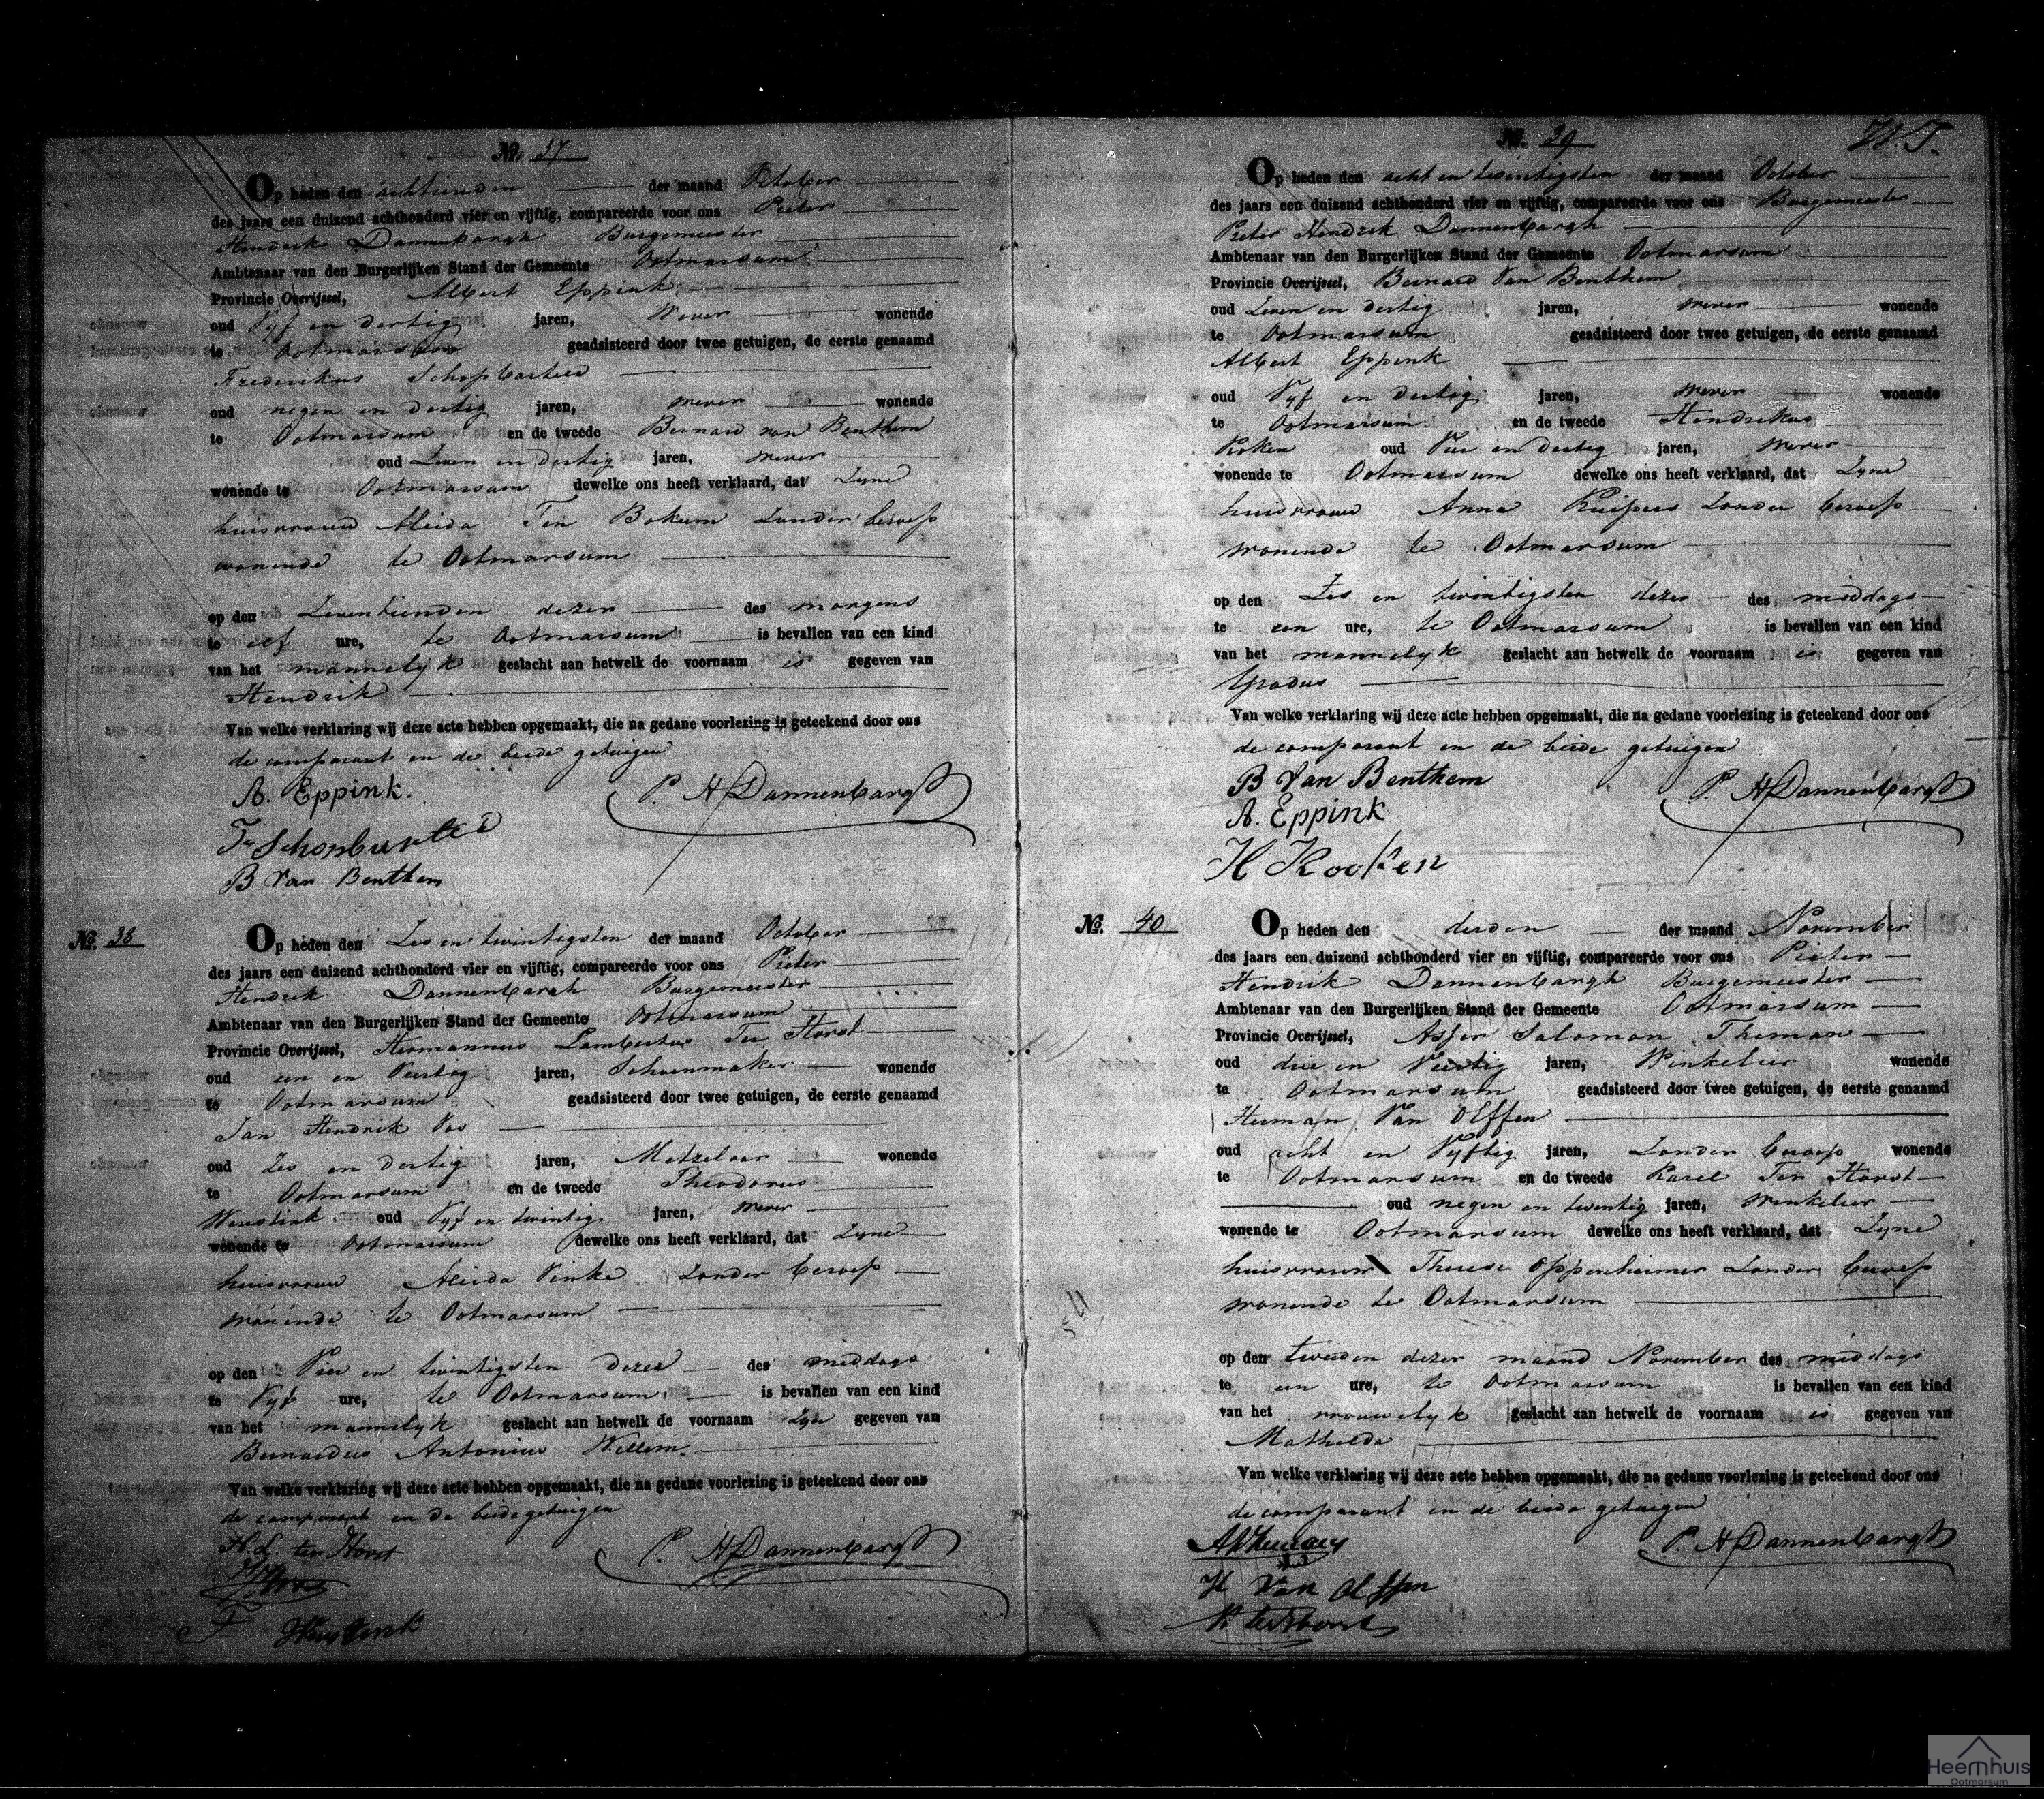 No. 37
Op heden den achttienden der maand October
des jaars een duizend achthonderd vier en vijftig, compareerde voor ons Pieter
Hendrik Dannenbargh Burgemeester
Ambtenaar van den Burgerlijken Stand der Gemeente Ootmarsum
Provincie Overijssel, Albert Eppink
oud Vyf en dertig jaren, Wever wonende
te Ootmarsum geadsisteerd door twee getuigen, de eerste genaamd
Frederikus
oud negen en dertig jaren, wever wonende
te Ootmarsum en de tweede Bernard van Benthem
oud Zeven en dertig jaren, wever
wonende te Ootmarsum dewelke ons heeft verklaard, dat Zyne
huisvrouw Aleida Ten Bokum Zonder beroep
wonende te Ootmarsum
op den Zeventienden dezer des morgens
te elf ure, te Ootmarsum is bevallen van een kind
van het mannelyk geslacht aan hetwelk de voornaam is gegeven van
Hendrik
Van welke verklaring wij deze acte hebben opgemaakt, die na gedane voorlezing is geteekend door ons
de comparant en de beide getuigen
A. Eppink. P. H Dannenbargh
B Van Benthem
No. 38
Op heden den Zes en twintigsten der maand October
des jaars een duizend achthonderd vier en vijftig, compareerde voor ons Pieter
Hendrik Dannenbargh Burgemeester
Ambtenaar van den Burgerlijken Stand der Gemeente Ootmarsum
Provincie Overijssel, Hermannus Lambertus Ter Horst
oud een en Veertig jaren, Schoenmaker wonende
te Ootmarsum geadsisteerd door twee getuigen, de eerste genaamd
Jan Hendrik Vos
oud Zes en dertig jaren, Metzelaar wonende
te Ootmarsum en de tweede Theodorus
Weustink oud Vyf en twintig jaren, wever
wonende te Ootmarsum dewelke ons heeft verklaard, dat Zyne
huisvrouw Aleida Vinke Zonder beroep
wonende te Ootmarsum
op den Vier en twintigsten dezer des middags
te Vyf ure, te Ootmarsum is bevallen van een kind
van het mannelyk geslacht aan hetwelk de voornaam Zyn gegeven van
Bernardus Antonius Willem
Van welke verklaring wij deze acte hebben opgemaakt, die na gedane voorlezing is geteekend door ons
de comparant en de beide getuigen
H. L. ter Horst P. H Dannenbargh
No. 39
Op heden den acht en twintigsten der maand October
des jaars een duizend achthonderd vier en vijftig, compareerde voor ons Burgemeester
Pieter Hendrik Dannenbargh
Ambtenaar van den Burgerlijken Stand der Gemeente Ootmarsum
Provincie Overijssel, Bernard Van Benthem
oud Zeven en dertig jaren, wever wonende
te Ootmarsum geadsisteerd door twee getuigen, de eerste genaamd
Albert Eppink
oud Vyf en dertig jaren, wever wonende
te Ootmarsum en de tweede Hendrikus
Koken oud Vier en dertig jaren, Wever
wonende te Ootmarsum dewelke ons heeft verklaard, dat Zyne
huisvrouw Anna Kuipers Zonder beroep
wonende te Ootmarsum
op den Zes en twintigsten dezer des middags
te een ure, te Ootmarsum is bevallen van een kind
van het mannelyk geslacht aan hetwelk de voornaam is gegeven van
Gradus
Van welke verklaring wij deze acte hebben opgemaakt, die na gedane voorlezing is geteekend door ons
de comparant en de beide getuigen
B Van Benthem P. H Dannenbargh
A. Eppink
H Kooken
No. 40
Op heden den derden der maand November
des jaars een duizend achthonderd vier en vijftig, compareerde voor ons Pieter
Hendrik Dannenbargh Burgemeester
Ambtenaar van den Burgerlijken Stand der Gemeente Ootmarsum
Provincie Overijssel, Asser Salomon Theman
oud drie en Veertig jaren, Winkelier wonende
te Ootmarsum geadsisteerd door twee getuigen, de eerste genaamd
Herman Van Olffen
oud acht en Vyftig jaren, Zonder beroep wonende
te Ootmarsum en de tweede Karel Ter Horst
oud negen en twentig jaren, Winkelier
wonende te Ootmarsum dewelke ons heeft verklaard, dat Zyne
huisvrouw Therese Oppenheimer Zonder beroep
wonende te Ootmarsum
op den tweeden dezer maand November des middags
te een ure, te Ootmarsum is bevallen van een kind
van het vrouwelyk geslacht aan hetwelk de voornaam is gegeven van
Mathilda
Van welke verklaring wij deze acte hebben opgemaakt, die na gedane voorlezing is geteekend door ons
de comparant en de beide getuigen
P. H Dannenbargh
H Van Olffen
Heemhuis
Ootmarsum